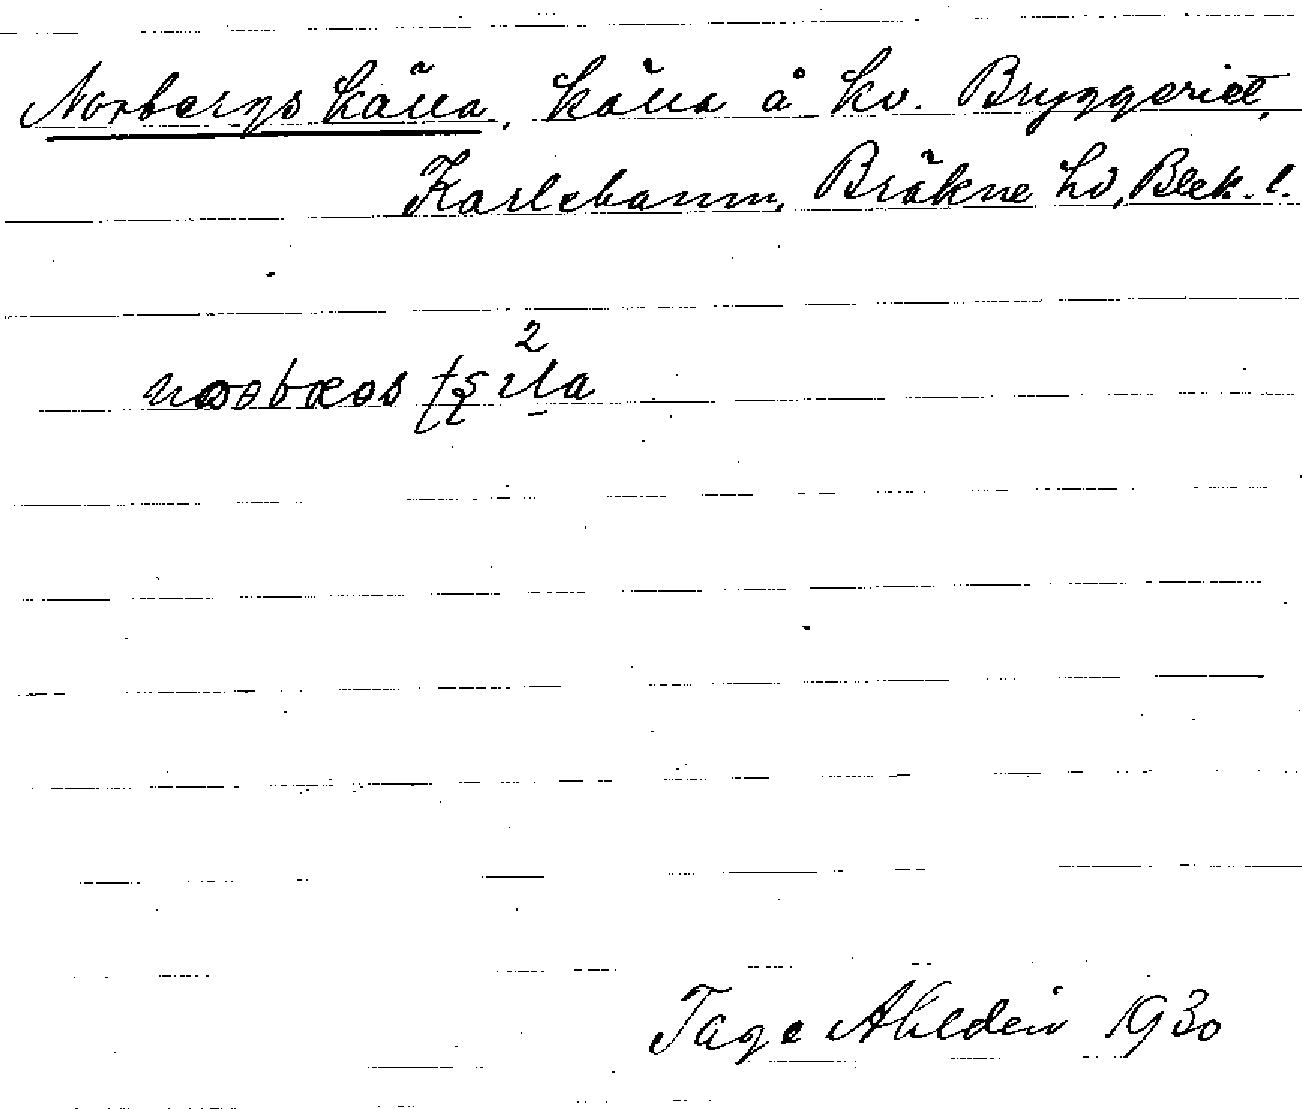 Norbergs källa, källa å kv. Bryggeriet,
Karlshamn, Bräkne hd, Blek. l.
Tage Ahldén 1930